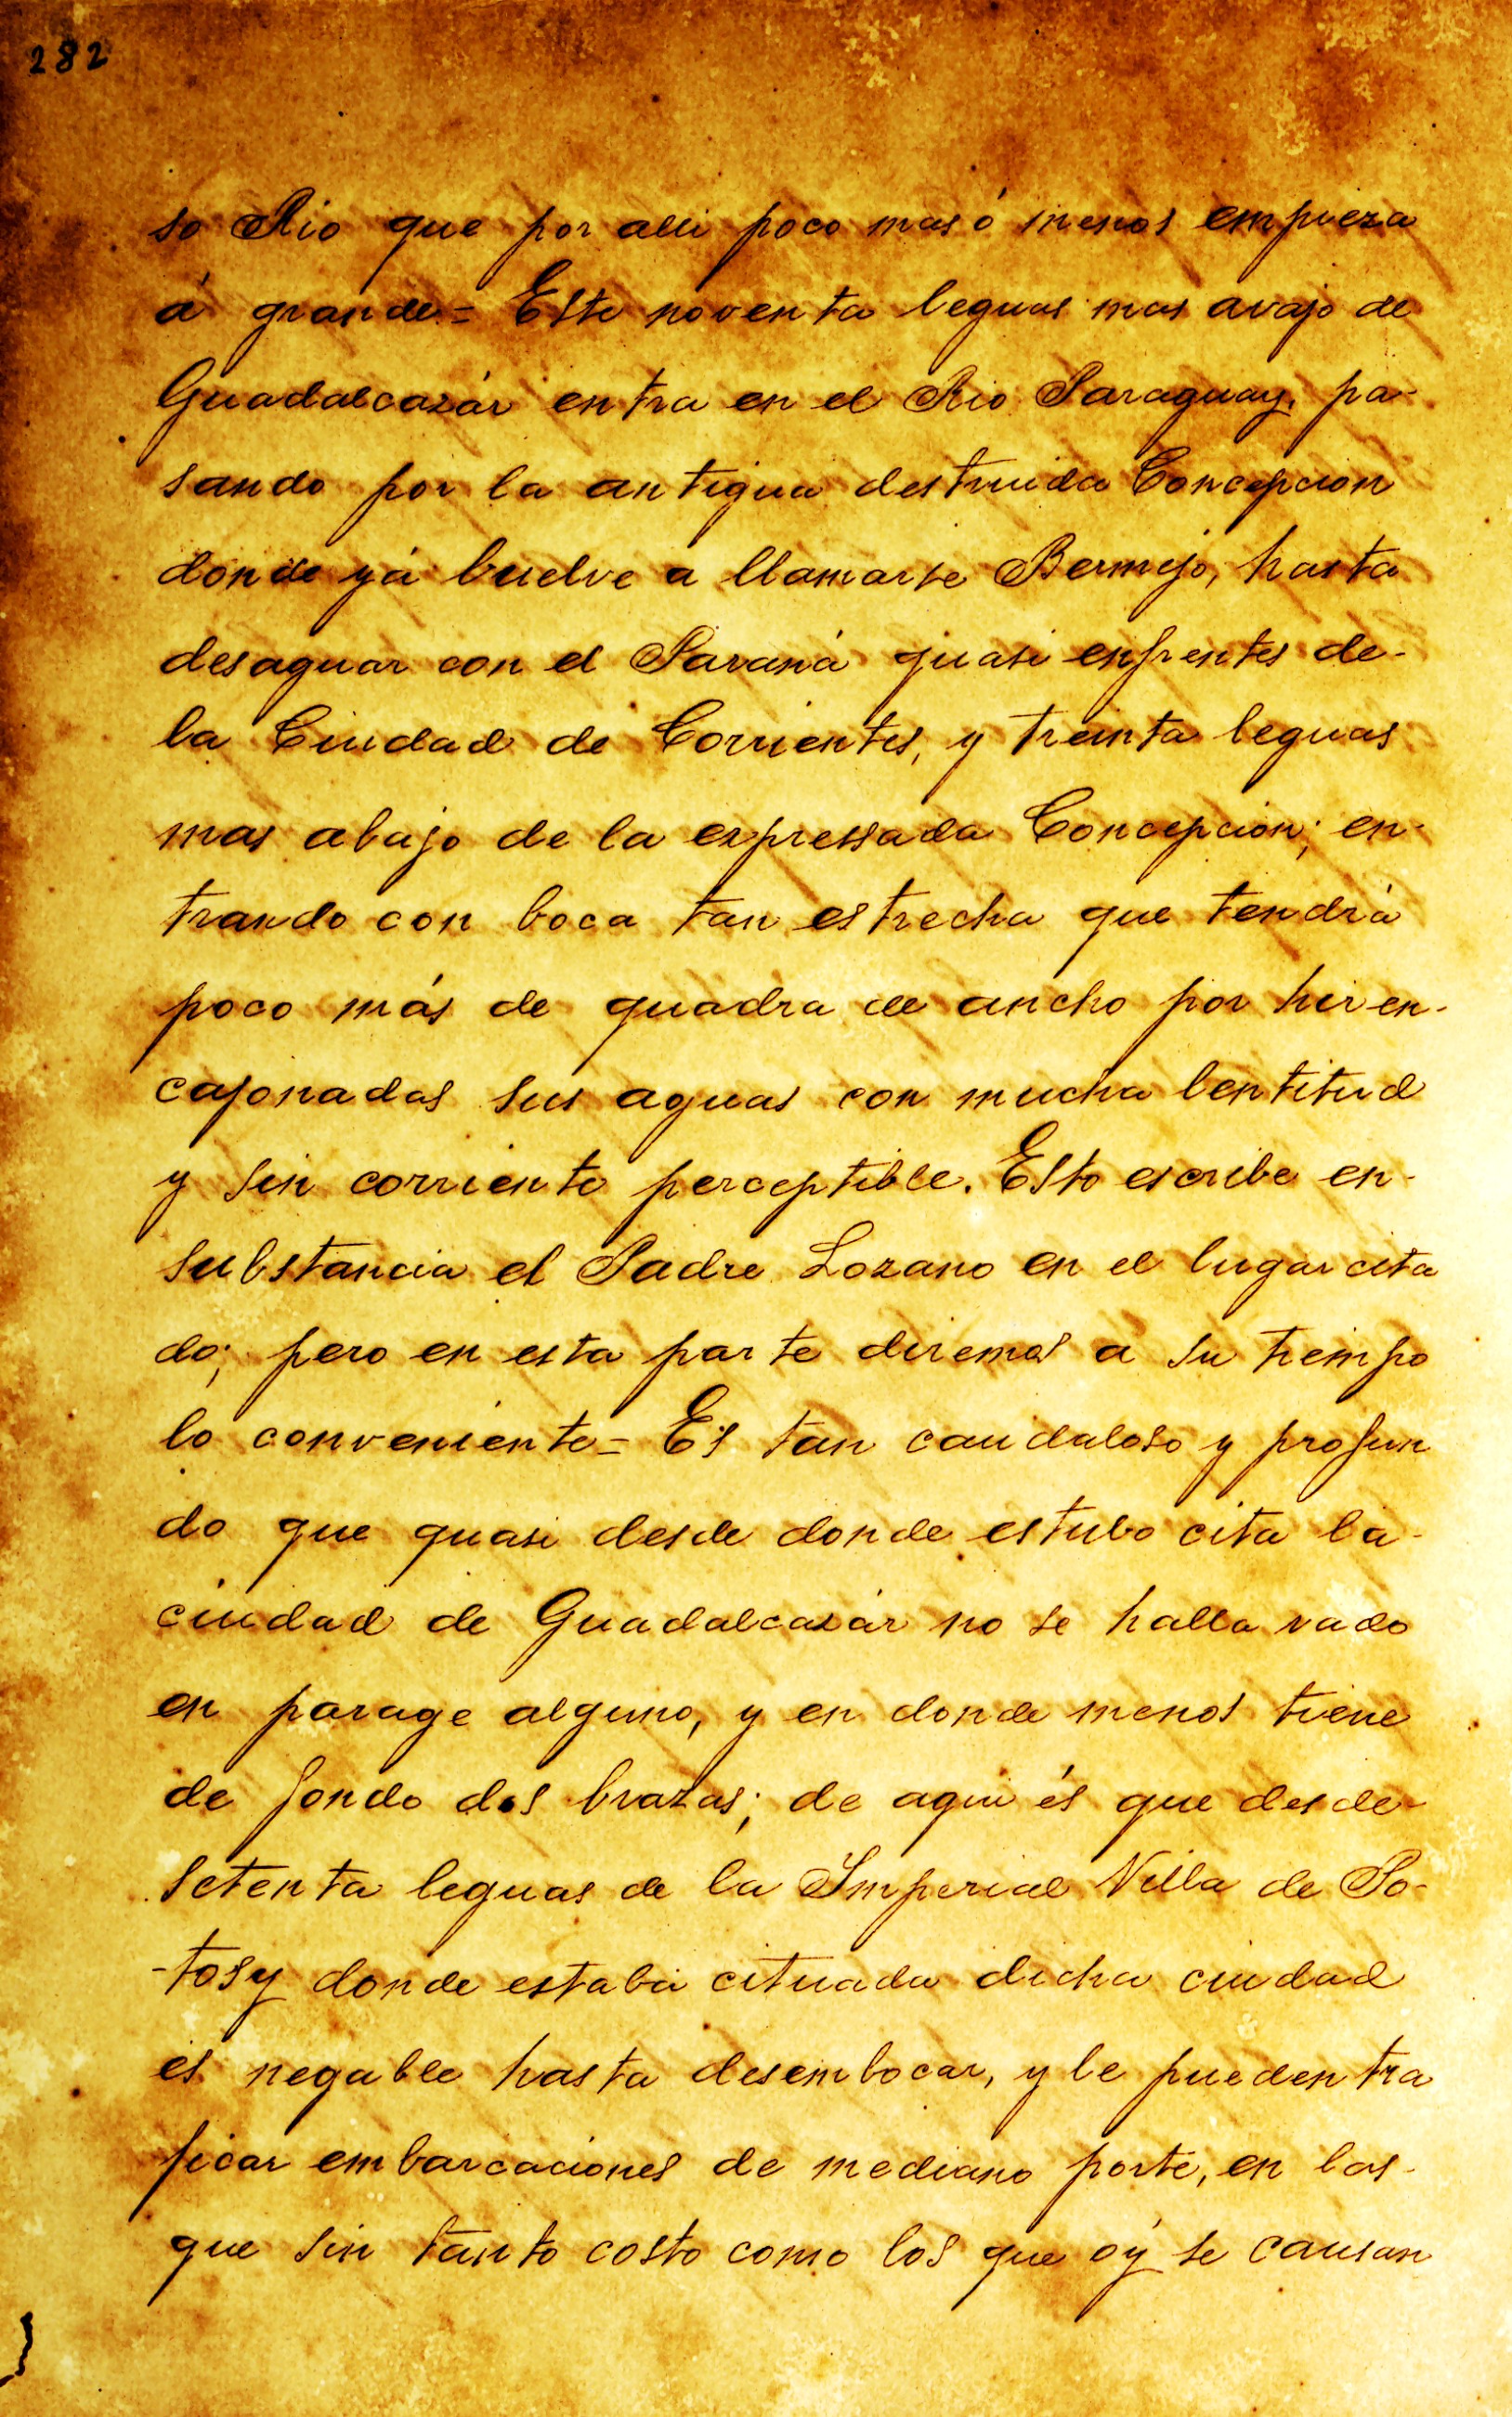 282
so Rio que por alli poco mas ó menos empieza
á grande= Este noventa leguas mas avajo de
Guadalcazár entra en el Rio Paraguay, pa-
sando por la antigua destruida Concepcion
donde yá buelve a llamarse Bermejo, hasta
desaguar con el Paraná quasi enfrentes de-
la Ciudad de Corrientes, y treinta leguas
mas abajo de la expressada Concepcion; en-
trando con boca tan estrecha que tendrá
poco más de quadra de ancho por hir en-
cajonadas sus aguas con mucha lentitud
y sin corriente perceptible. Esto escribe en-
substancia el Padre Lozano en el lugar cita
do; pero en esta parte diremos a su tiempo
lo conveniente= Es tan caudaloso y profun
do que quasi desde donde estubo cita la-
ciudad de Guadalcazár no se halla vado
en parage alguno, y en donde menos tiene
de fondo dos brazas; de aqui és que desde-
setenta leguas de la Imperial Villa de Po-
-tosy donde estaba cituada dicha ciudad
es negable hasta desembocar, y le pueden tra
ficar embarcaciones de mediano porte, en las-
que sin tanto costo como los que oy se causan